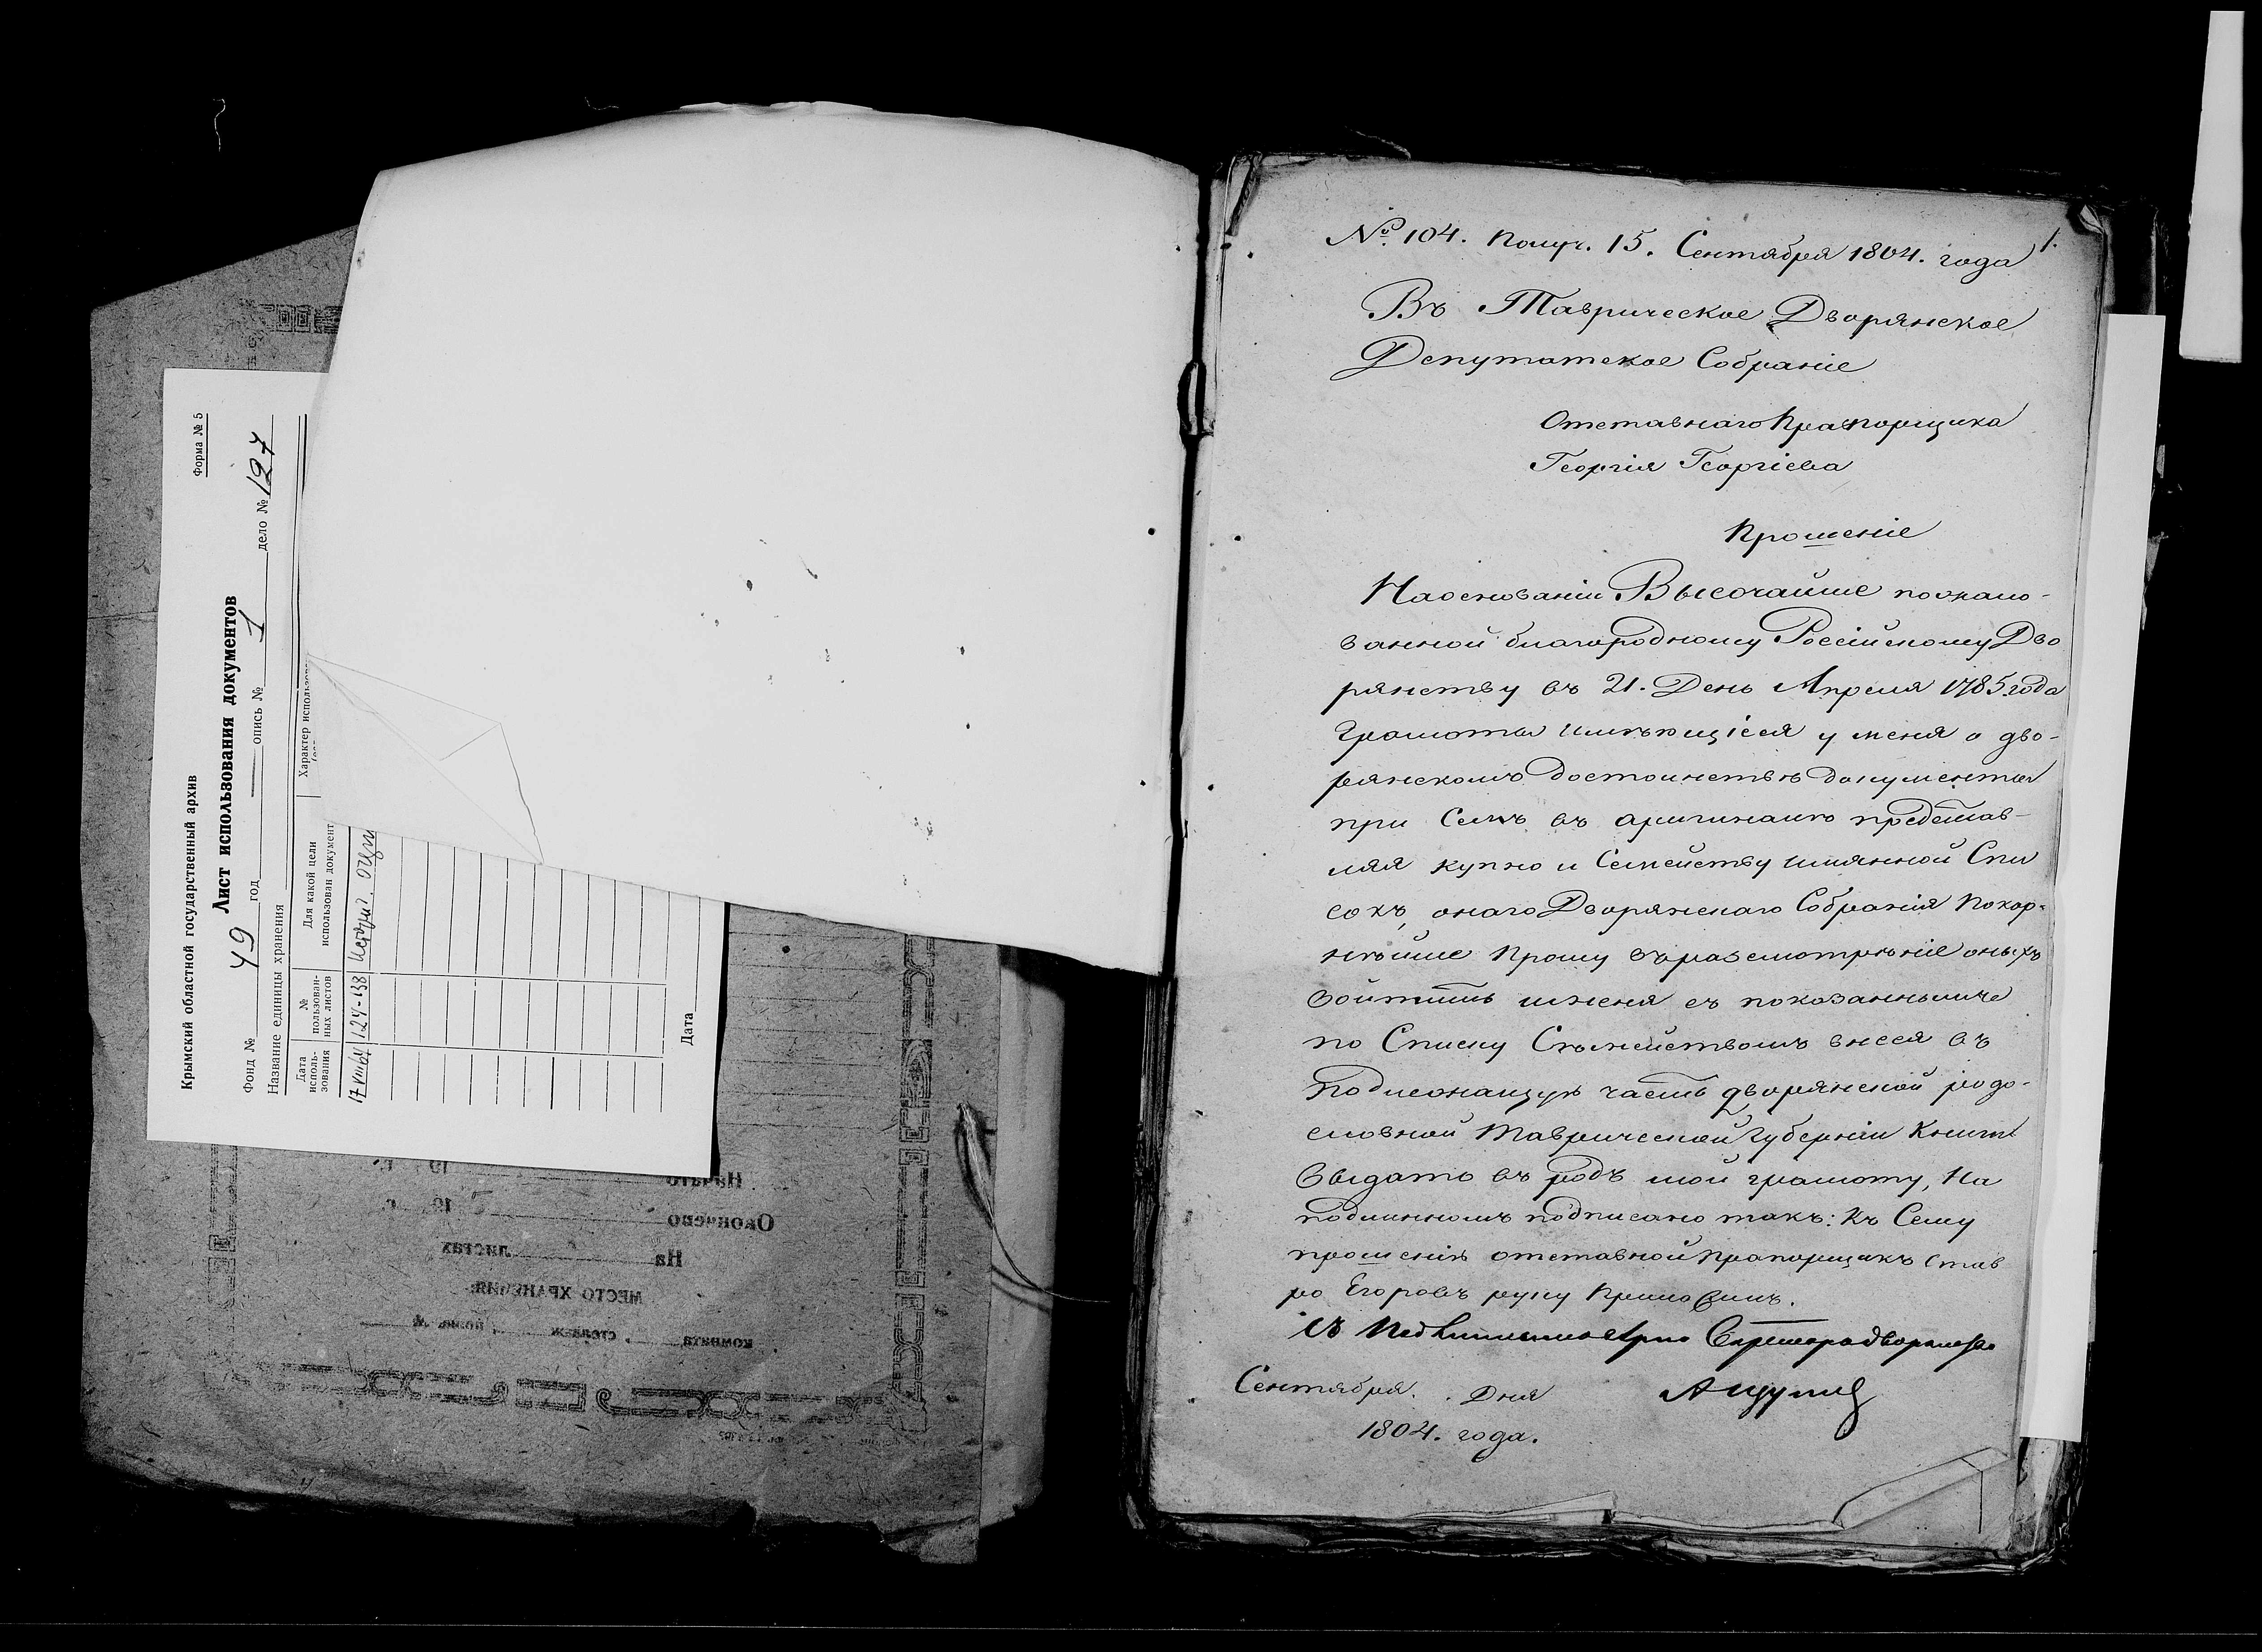 Крымский областной государственный архив
Форма № 5
Лист использования документов
Фонд № 49 год опись № 1 дело № 127
Название единицы хранения
Дата использования
№ использованных листов
Для какой цели использован документ
Характер использов
17 VIII 64 124-138
Дата
Начато 19 г.
Окончено 19 г.
На листах
МЕСТО ХРАНЕНИЯ:
комната стеллаж полка №
№ 104. Получ. 15. Сентября 1804. года 1.
Въ Таврическое Дворянское
Депутатское Собраніе
Отставнаго Прапорщика
Георгія Георгіева
Прошеніе
На основаніи Высочайше пожало-
ванной благородному Россійскому Дво
рянству въ 21. День Апреля 1785. года
Грамоты имѣющіеся у меня о дво-
рянскомъ достоинствѣ документы
при Семъ въ аригиналѣ представ-
ляя купно и Семейству имянной Спи
сокъ, онаго Дворянскаго Собранія Покор-
нѣйше Прошу въ разсмотрѣніе оныхъ
войтить и меня съ показанными
по Списку Съмействомъ внеся въ
подлежащую часть дворянской родо-
словной Таврической Губерніи Книги
выдать въ родъ мой грамоту, На
подлинномъ подписано такъ: Къ Сему
прошенію отставной Прапорщикъ Став
ро Егоровъ руку Приложилъ.
Съ
Сентября. Дня
1804. года.